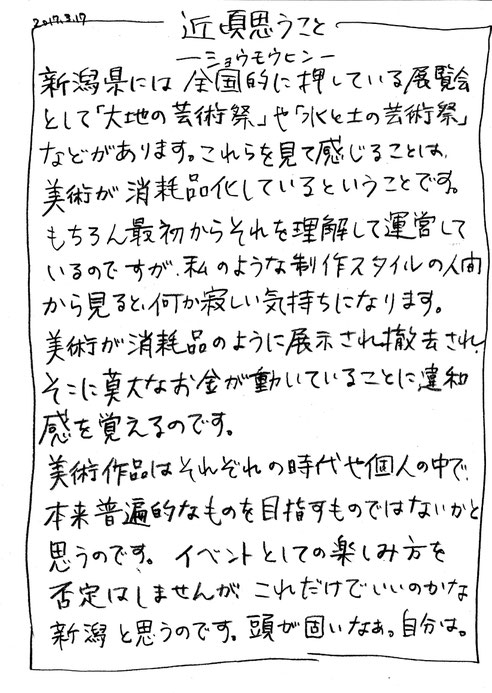 2017.3.17
近頃思うこと
―ショウモウヒン―
新潟県には全国的に押している展覧会
として「大地の芸術祭」や「水と土の芸術祭」
などがあります。これらを見て感じることは、
美術が消耗品化しているということです。
もちろん最初からそれを理解して運営して
いるのですが、私のような制作スタイルの人間
から見ると、何か寂しい気持ちになります。
美術が消耗品のように展示され、撤去され、
そこに莫大なお金が動いていることに違和
感を覚えるのです。
美術作品はそれぞれの時代や個人の中で、
本来普遍的なものを目指すものではないかと
思うのです。イベントとしての楽しみ方を
否定はしませんが、これだけでいいのかな
新潟と思うのです。頭が固いなぁ。自分は。